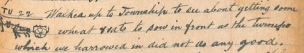 TU 22 Walked up to Township to see about getting some
wheat & oats to sow in front as the turnips
which we harrowed in did not do any good.